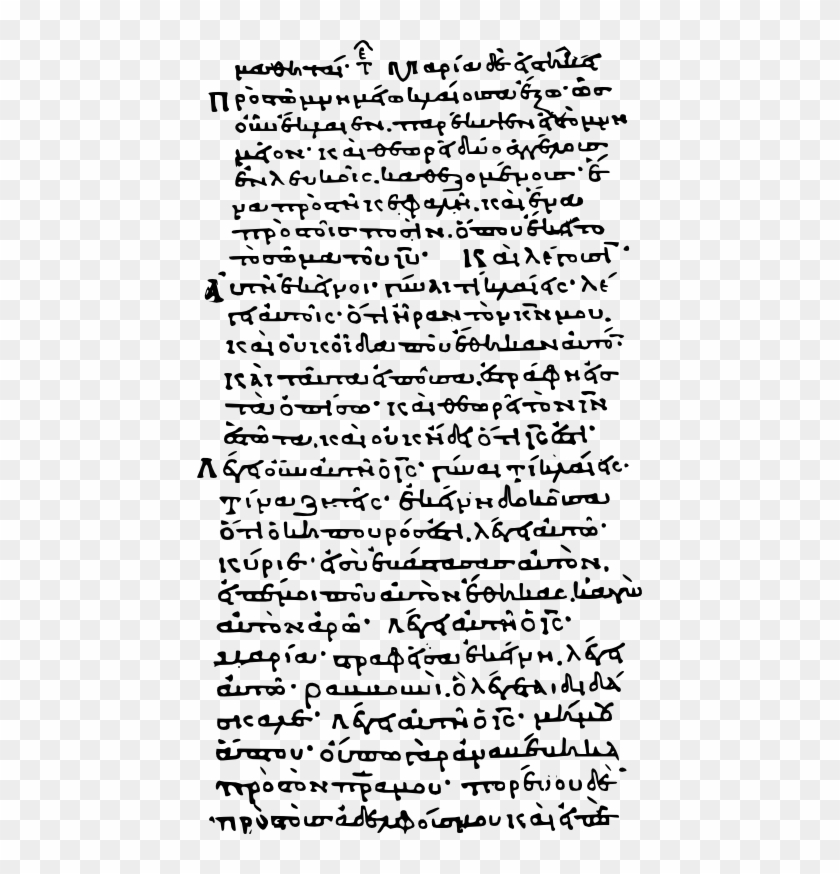 μαθηταί· Μαρία δὲ εἱστήκει
πρὸς τῶ μνημείω κλαίουσα ἔξω· ὡς
οὖν ἔκλαιεν. παρέκυψεν εἰς τὸ μνη
μεῖον· καὶ θεωρεῖ δύο ἀγγέλους
ἐν λευκοῖς. καθεζομένους· ἕ
να πρὸς τῆ κεφαλῆ. καὶ ἕνα
πρὸς τοῖς ποσὶν. ὅπου ἔκειτο
τὸ σῶμα τοῦ ιυ· Καὶ λέγουσι
αὐτῆ ἐκεῖνοι· γύναι τί κλαίεις· λέ
γει αὐτοῖς· ὅτι ἦραν τὸν κν μου.
καὶ οὐκ οἶδα ποῦ ἔθηκαν αὐτό·
καὶ ταῦτα εἰποῦσα. ἐστράφη εἰς
τὰ ὀπίσω· καὶ θεωρεῖ τὸν ιν
ἑστῶτα. καὶ οὐκ ἤδει ὅτι ις ἐστι·
Λέγει οὖν αὐτῆ ὁ ις· γύναι τί κλαίεις·
τίνα ζητεῖς· ἐκείνη δοκοῦσα
ὅτι ὁ κηπουρός ἐστι. λέγει αὐτῶ·
κύριε· εἰ σὺ ἐβάστασας αὐτὸν.
εἰπέ μοι ποῦ αὐτὸν ἔθηκας. κἀγὼ
αὐτὸν ἀρῶ· Λέγει αὐτῆ ὁ ις·
μαρία· στραφεῖσα ἐκείνη. λέγει
αὐτῶ· ραββουνὶ. ὃ λέγεται διδά
σκαλε· Λέγει αὐτῆ ὁ ις· μή μου
ἅπτου· οὔπω γὰρ ἀναβέβηκα
πρὸς τὸν πρα μου· πορεύου δὲ
πρὸς τοὺς ἀδελφούς μου καὶ εἰπὲ